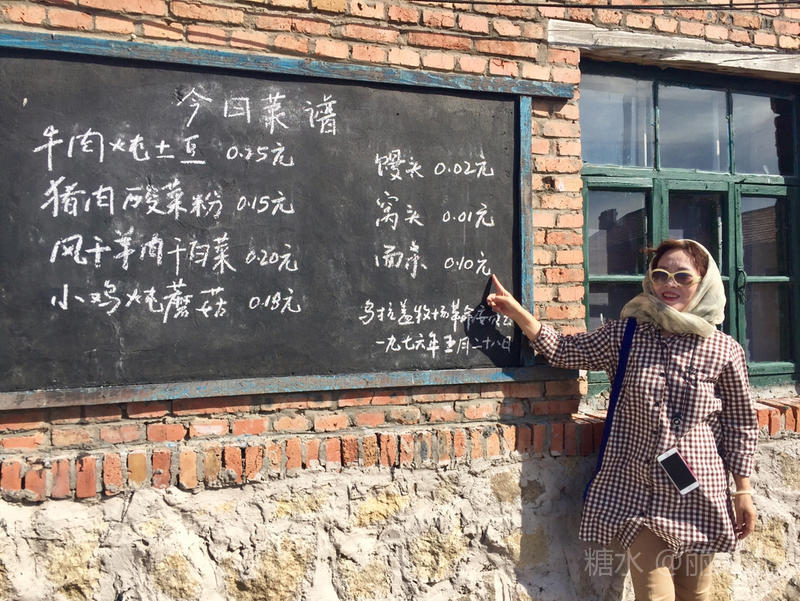 今日菜谱
牛肉炖土豆 0.25元
猪肉酸菜粉 0.15元
风干羊肉干白菜 0.20元
小鸡炖蘑菇 0.18元
馒头 0.02元
窝头 0.01元
面条 0.10元
乌拉盖牧场革命委员会
一九七六年五月二十八日
糖水 @丽